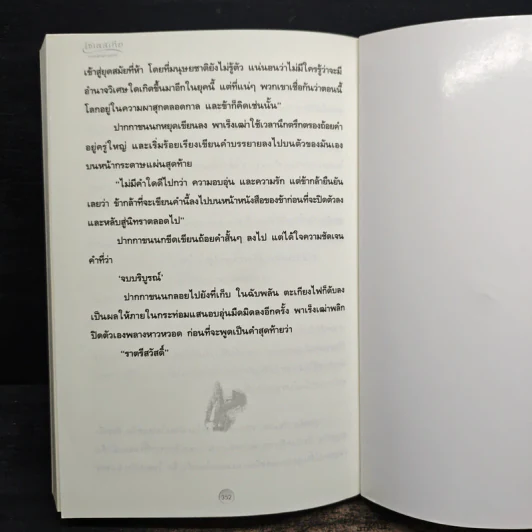 เข้าสู่ยุคสมัยที่ห้า โดยที่มนุษยชาติยังไม่รู้ตัว แน่นอนว่าไม่มีใครรู้ว่าจะมี
อำนาจวิเศษใดเกิดขึ้นมาอีกในยุคนี้ แต่ที่แน่ๆ พวกเขาเชื่อกันว่าตอนนี้
โลกอยู่ในความผาสุกตลอดกาล และข้าก็คิดเช่นนั้น"
ปากกาขนนกหยุดเขียนลง พาเร็งเฒ่าใช้เวลานึกตรึกตรองถ้อยคำ
อยู่ครู่ใหญ่ และเริ่มร้อยเรียงเขียนคำบรรยายลงไปบนตัวของมันเอง
บนหน้ากระดาษแผ่นสุดท้าย
"ไม่มีคำใดดีไปกว่า ความอบอุ่น และความรัก แต่ข้ากล้ายืนยัน
เลยว่า ข้ากล้าที่จะเขียนคำนี้ลงไปบนหน้าหนังสือของข้าก่อนที่จะปิดตัวลง
และหลับสู่นิทราตลอดไป"
ปากกาขนนกขีดเขียนถ้อยคำสั้นๆ ลงไป แต่ได้ใจความชัดเจน
คำที่ว่า
'จบบริบูรณ์'
ปากกาขนนกลอยไปยังที่เก็บ ในฉับพลัน ตะเกียงไฟก็ดับลง
เป็นผลให้ภายในกระท่อมแสนอบอุ่นมืดมิดลงอีกครั้ง พาเร็งเฒ่าพลิก
ปิดตัวเองพลางหาวหวอด ก่อนที่จะพูดเป็นคำสุดท้ายว่า
"ราตรีสวัสดิ์"
352